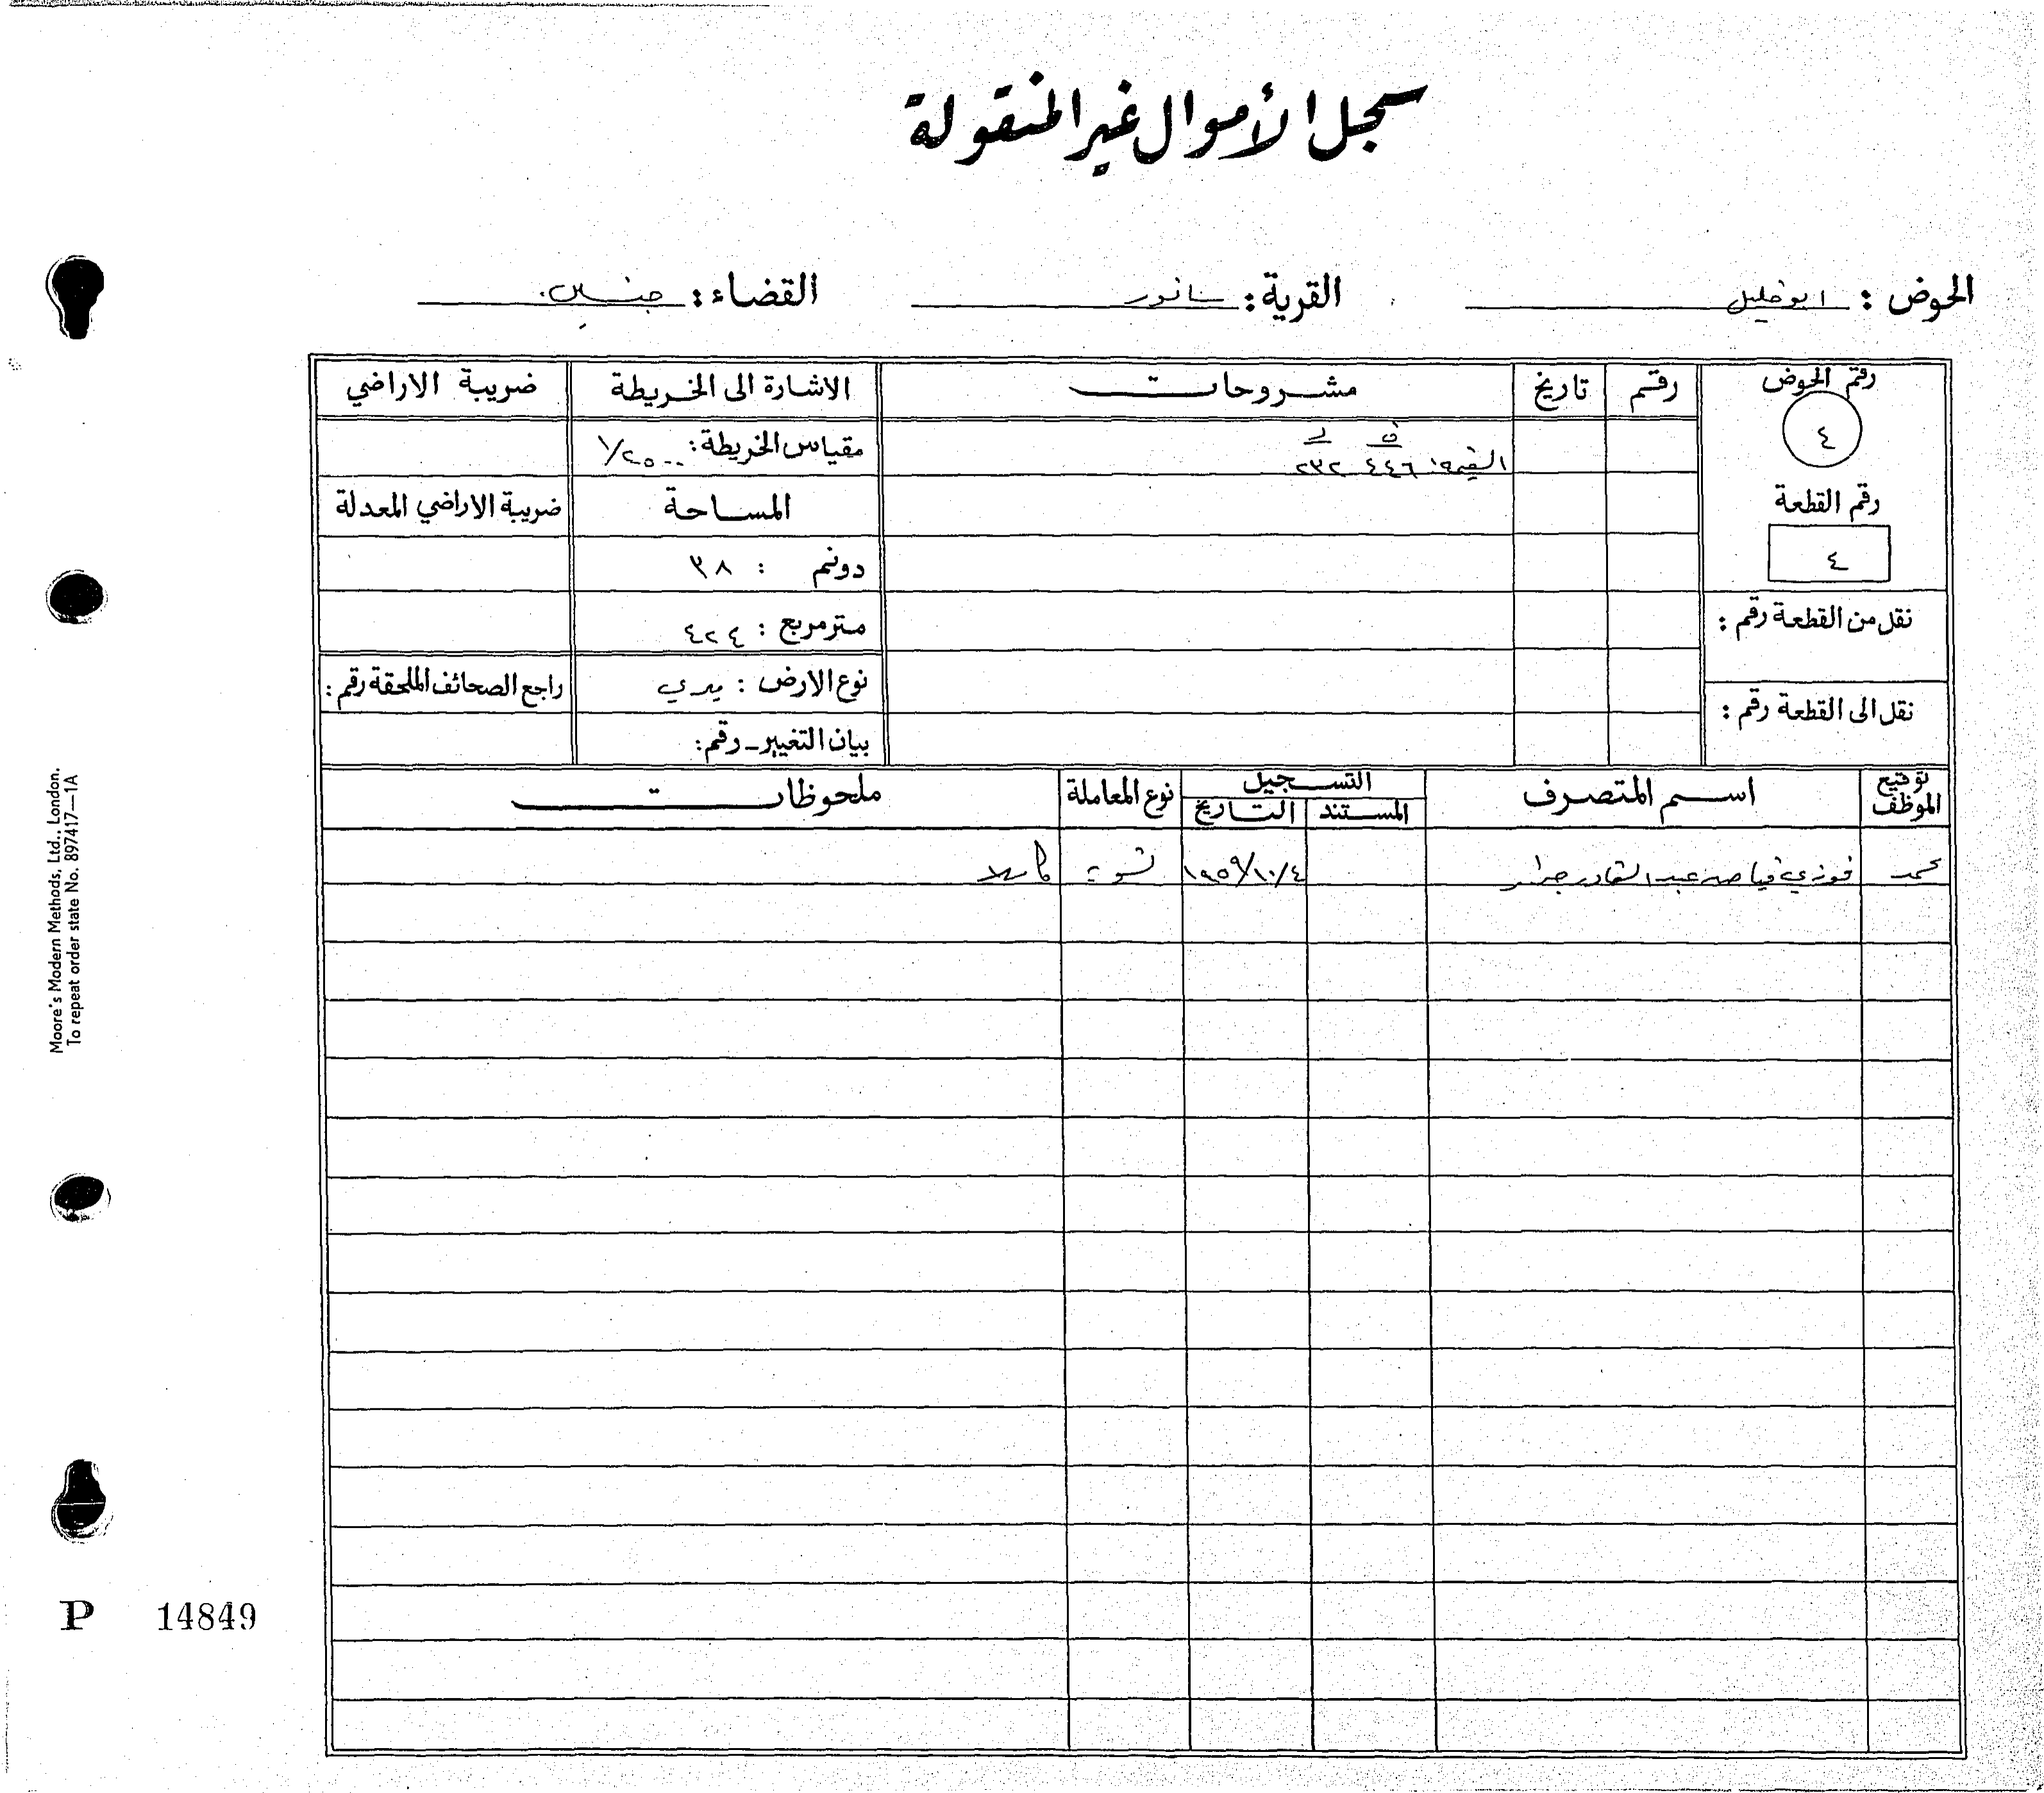 سجل الأموال غير المنقولة
الحوض : ابو خليل القرية : سانور القضاء : جنين
رقم الحوض رقم تاريخ مشروحات الاشارة الى الخريطة ضريبة الاراضي
٤
ف د
القيمة: ٤٤٦ ٢٣٢
مقياس الخريطة : ١/٢٥٠٠
رقم القطعة
٤
المساحة ضريبة الاراضي المعدلة
دونم : ٣٨
نقل من القطعة رقم :
متر مربع : ٤٢٤
نوع الارض : ميري راجع الصحائف الملحقة رقم :
نقل الى القطعة رقم :
بيان التغيير - رقم :
توقيع الموظف اسم المتصرف التسجيل نوع المعاملة ملحوظات
المستند التاريخ
محمد فوزي فياض عبد القادر جرار ١٩٥٩/١٠/٤ تسوية كاملا
Moore's Modern Methods, Ltd., London.
To repeat order state No. 897417—1A
P 14849